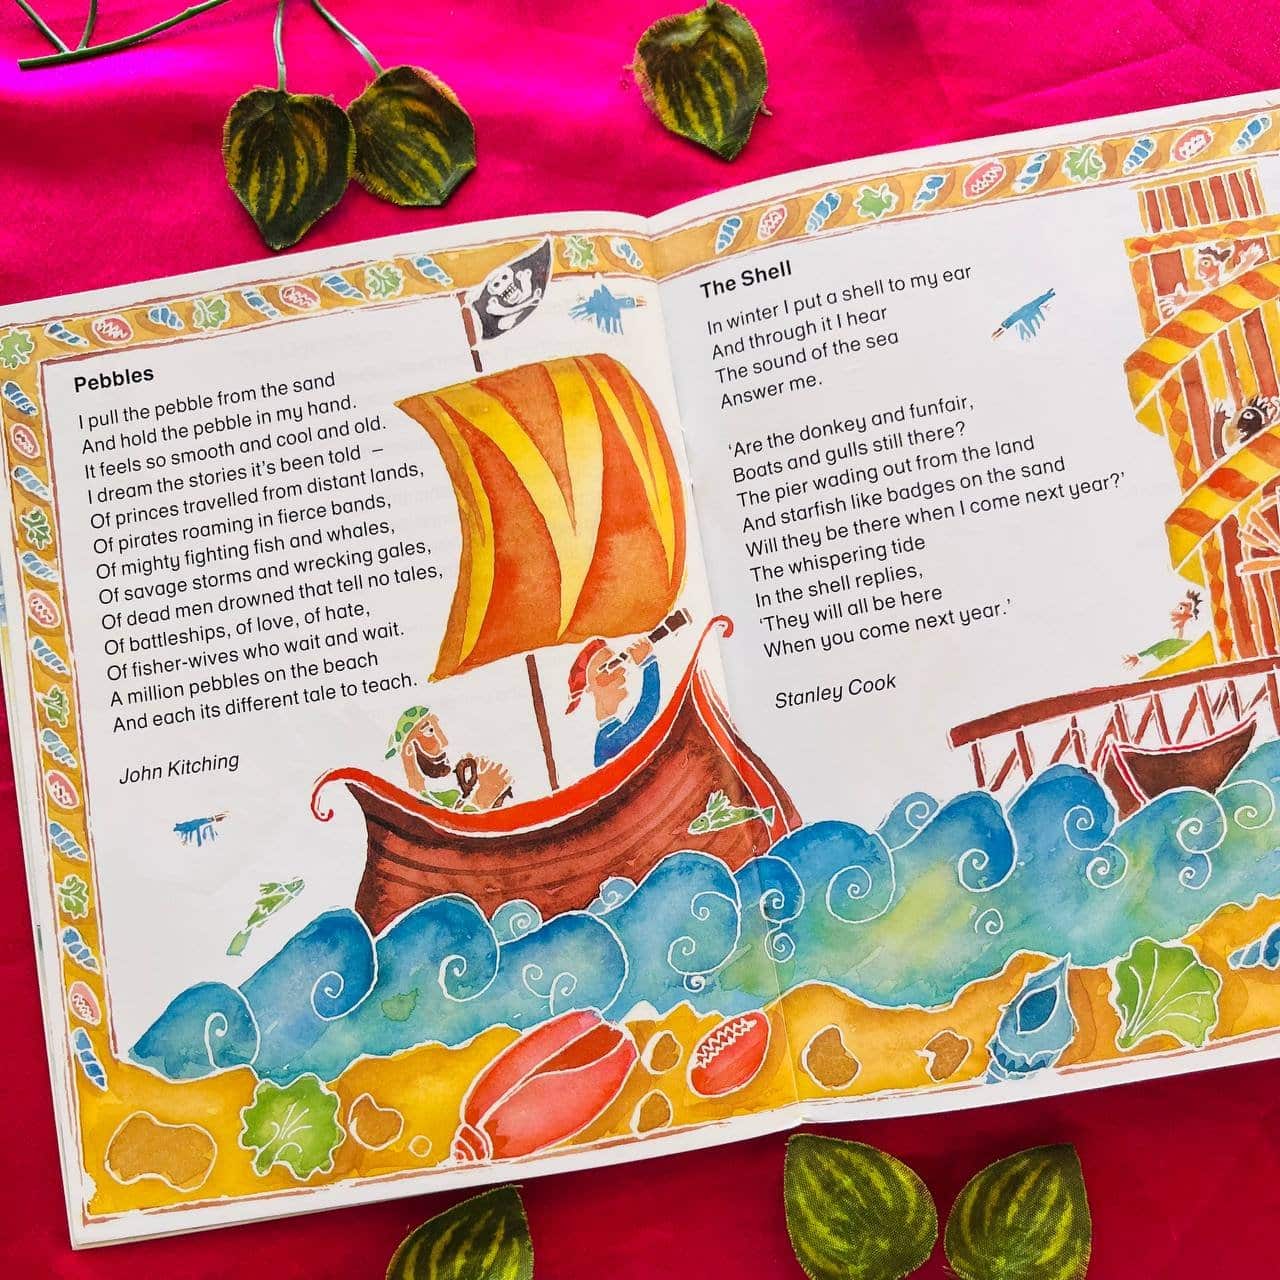 Pebbles
I pull the pebble from the sand
And hold the pebble in my hand.
It feels so smooth and cool and old.
I dream the stories it's been told –
Of princes travelled from distant lands,
Of pirates roaming in fierce bands,
Of mighty fighting fish and whales,
Of savage storms and wrecking gales,
Of dead men drowned that tell no tales,
Of battleships, of love, of hate,
Of fisher-wives who wait and wait.
A million pebbles on the beach
And each its different tale to teach.
John Kitching
The Shell
In winter I put a shell to my ear
And through it I hear
The sound of the sea
Answer me.
'Are the donkey and funfair,
Boats and gulls still there?
The pier wading out from the land
And starfish like badges on the sand
Will they be there when I come next year?'
The whispering tide
In the shell replies,
'They will all be here
When you come next year.'
Stanley Cook